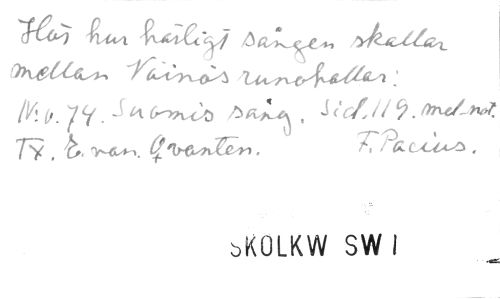 Hör hur härligt sången skallar
mellan Väinös runohallar:
N:o. 74. Suomis sång. Sid. 119. med not.
Tx. E. von. Qvanten. F. Pacius.
SKOLKW SW1